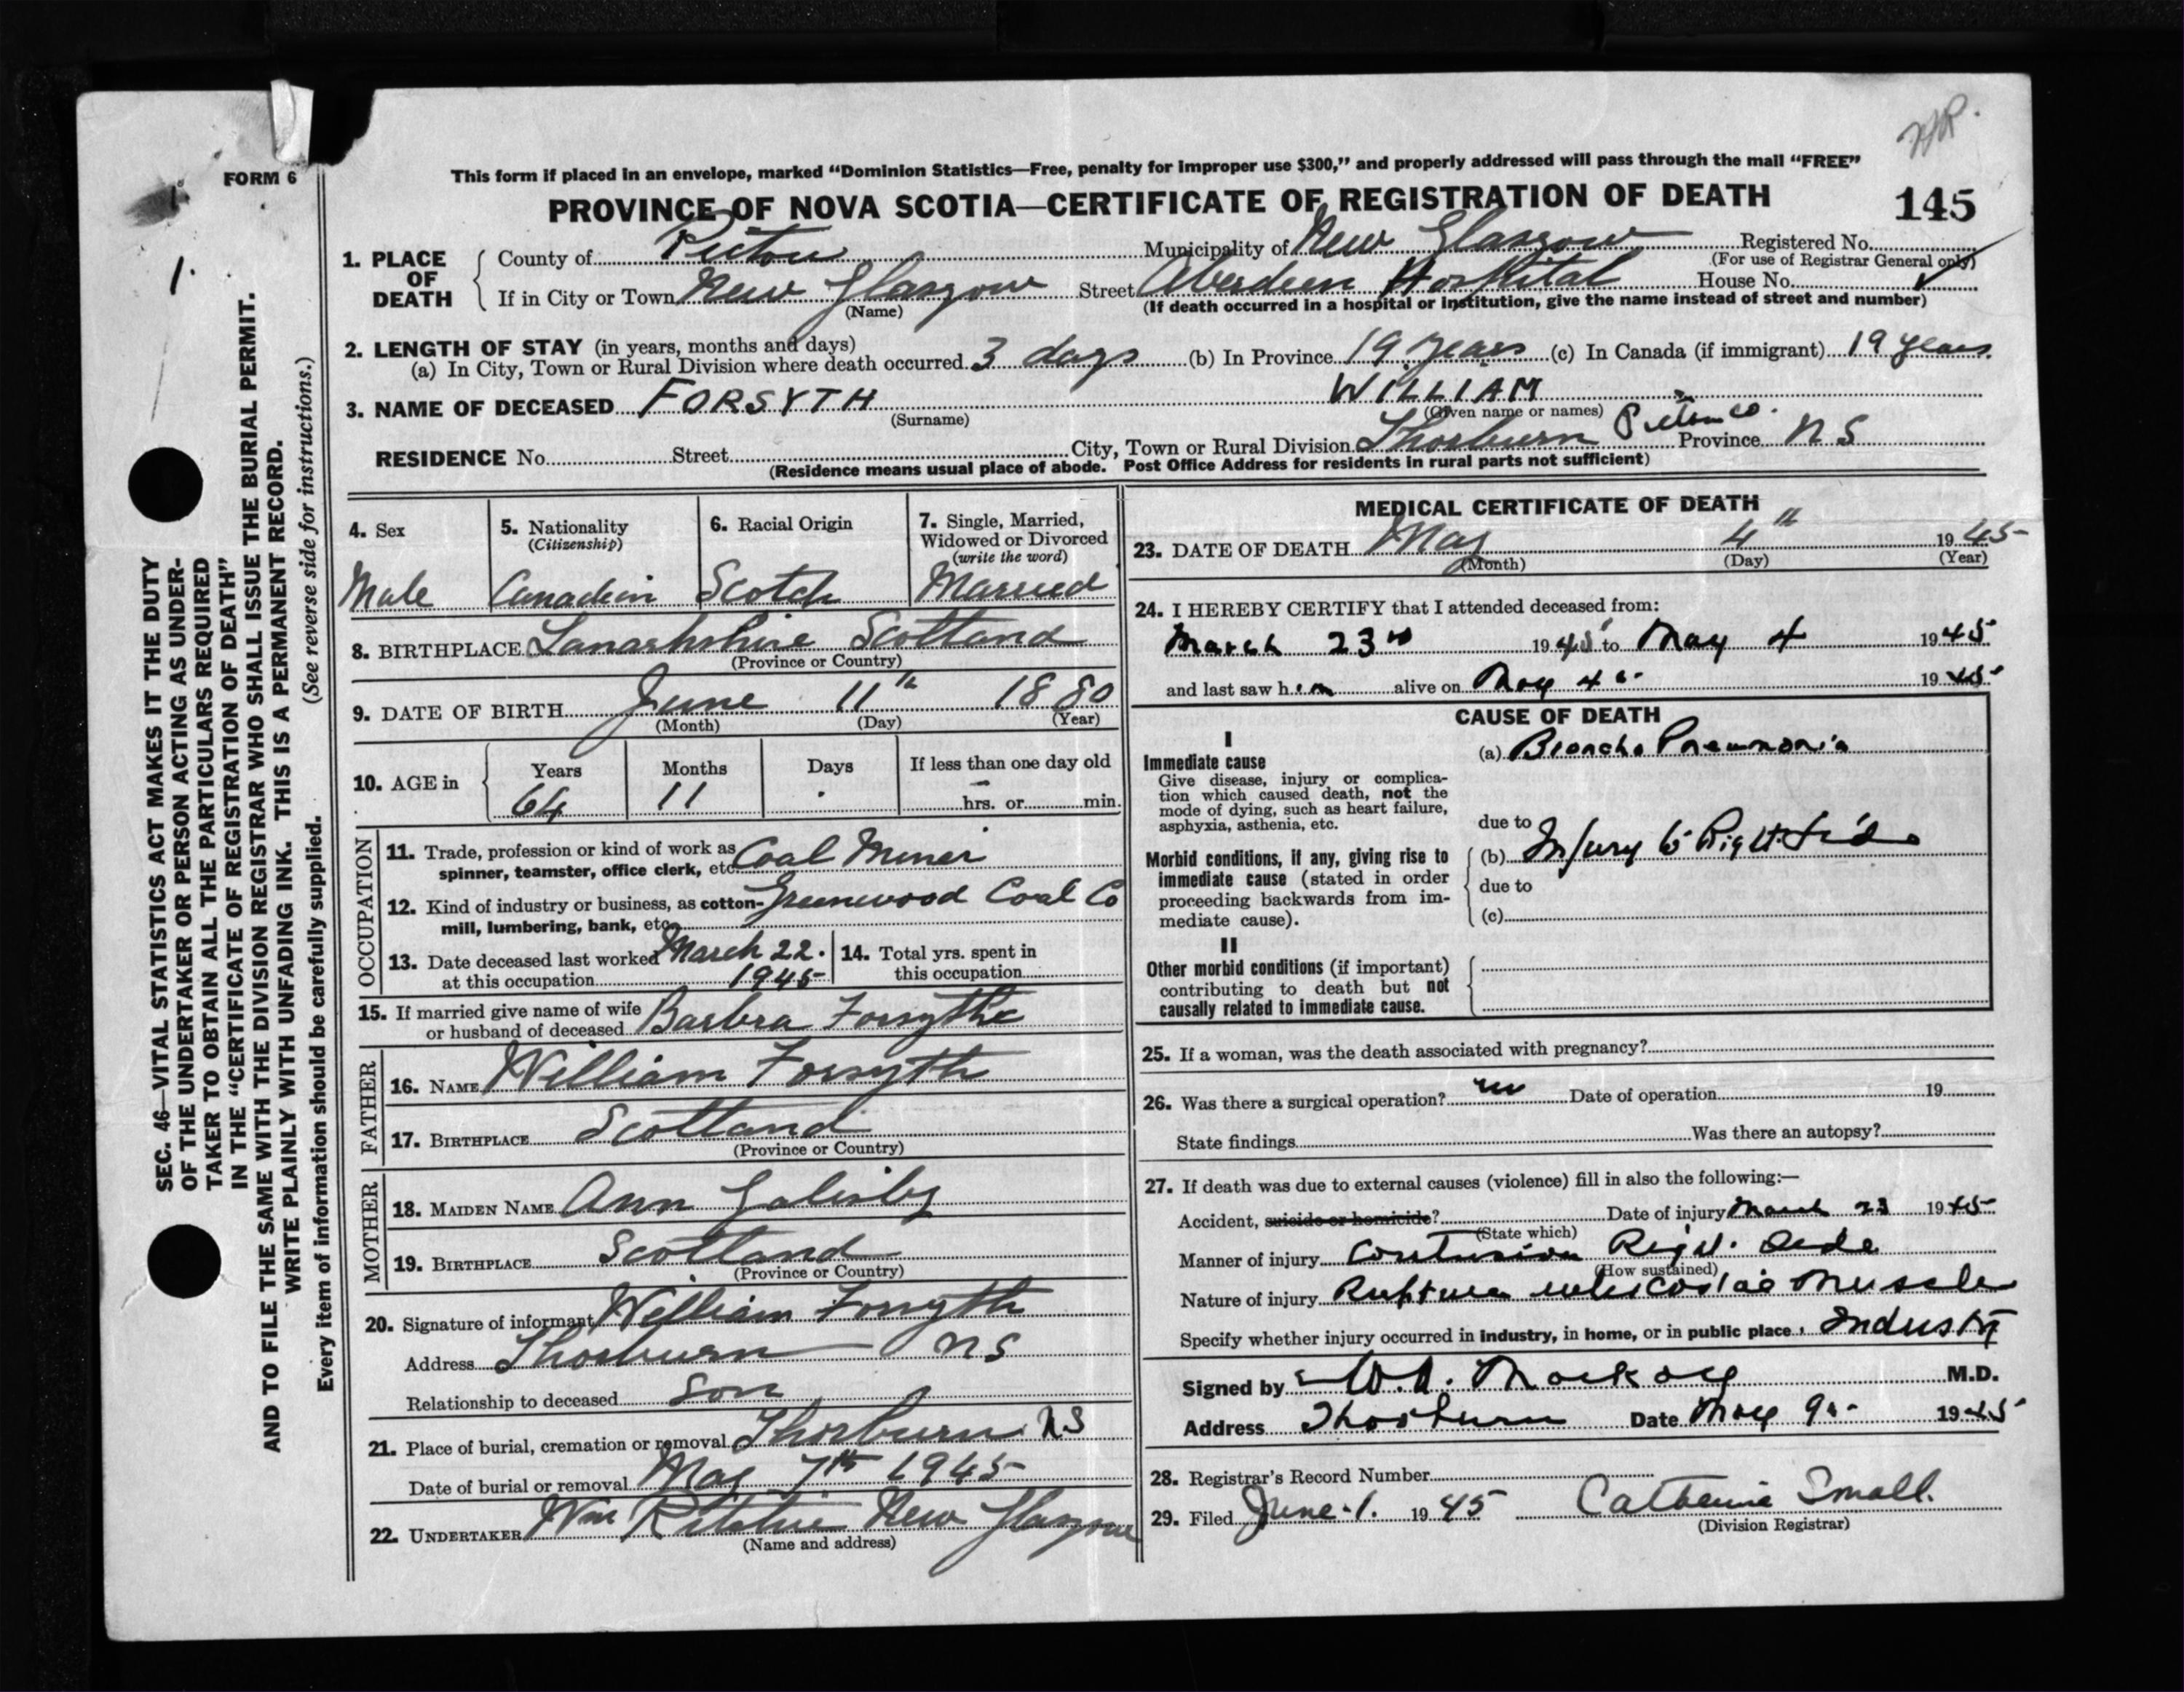 FORM 6
This form if placed in an envelope, marked “Dominion Statistics—Free, penalty for improper use $300,” and properly addressed will pass through the mail “FREE”
PROVINCE OF NOVA SCOTIA—CERTIFICATE OF REGISTRATION OF DEATH 145
1. PLACE OF DEATH
County of Pictou Municipality of New Glasgow Registered No.
(For use of Registrar General only)
If in City or Town New Glasgow Street Aberdeen Hospital House No.
(Name) (If death occurred in a hospital or institution, give the name instead of street and number)
2. LENGTH OF STAY (in years, months and days)
(a) In City, Town or Rural Division where death occurred 3 days (b) In Province 19 years (c) In Canada (if immigrant) 19 years
3. NAME OF DECEASED FORSYTH WILLIAM
(Surname) (Given name or names)
RESIDENCE No. Street City, Town or Rural Division Thorburn Pictou Co. Province N S
(Residence means usual place of abode. Post Office Address for residents in rural parts not sufficient)
4. Sex
Male
5. Nationality
(Citizenship)
Canadian
6. Racial Origin
Scotch
7. Single, Married,
Widowed or Divorced
(write the word)
Married
8. BIRTHPLACE Lanarkshire Scotland
(Province or Country)
9. DATE OF BIRTH June 11th 1880
(Month) (Day) (Year)
10. AGE in
Years Months Days If less than one day old
64 11 hrs. or min.
OCCUPATION
11. Trade, profession or kind of work as Coal Miner
spinner, teamster, office clerk, etc.
12. Kind of industry or business, as cotton- Greenwood Coal Co
mill, lumbering, bank, etc.
13. Date deceased last worked March 22.
at this occupation 1945
14. Total yrs. spent in
this occupation
15. If married give name of wife
or husband of deceased Barbra Forsythe
FATHER
16. NAME William Forsyth
17. BIRTHPLACE Scotland
(Province or Country)
MOTHER
18. MAIDEN NAME Ann
19. BIRTHPLACE Scotland
(Province or Country)
20. Signature of informant William Forsyth
Address Thorburn N S
Relationship to deceased son
21. Place of burial, cremation or removal Thorburn NS
Date of burial or removal May 7th 1945
22. UNDERTAKER Wm Ritchie New Glasgow
(Name and address)
MEDICAL CERTIFICATE OF DEATH
23. DATE OF DEATH May 4th 1945
(Month) (Day) (Year)
24. I HEREBY CERTIFY that I attended deceased from:
March 23rd 1945 to May 4 1945
and last saw him alive on May 4 1945
CAUSE OF DEATH
I
Immediate cause
Give disease, injury or complica-
tion which caused death, not the
mode of dying, such as heart failure,
asphyxia, asthenia, etc.
(a) Broncho Pneumonia
due to
Morbid conditions, if any, giving rise to
immediate cause (stated in order
proceeding backwards from im-
mediate cause).
(b) Injury to Right Side
due to
(c)
II
Other morbid conditions (if important)
contributing to death but not
causally related to immediate cause.
25. If a woman, was the death associated with pregnancy?
26. Was there a surgical operation? no Date of operation 19
State findings Was there an autopsy?
27. If death was due to external causes (violence) fill in also the following:—
Accident, suicide or homicide? Date of injury March 23 1945
(State which)
Manner of injury Contusion Right Side
(How sustained)
Nature of injury Rupture intercostal muscle
Specify whether injury occurred in industry, in home, or in public place. Industry
Signed by M.D.
Address Thorburn Date May 9 1945
28. Registrar's Record Number
29. Filed June 1. 1945 Catherine Small.
(Division Registrar)
1.
SEC. 46—VITAL STATISTICS ACT MAKES IT THE DUTY
OF THE UNDERTAKER OR PERSON ACTING AS UNDER-
TAKER TO OBTAIN ALL THE PARTICULARS REQUIRED
IN THE “CERTIFICATE OF REGISTRATION OF DEATH”
AND TO FILE THE SAME WITH THE DIVISION REGISTRAR WHO SHALL ISSUE THE BURIAL PERMIT.
WRITE PLAINLY WITH UNFADING INK. THIS IS A PERMANENT RECORD.
(See reverse side for instructions.)
Every item of information should be carefully supplied.